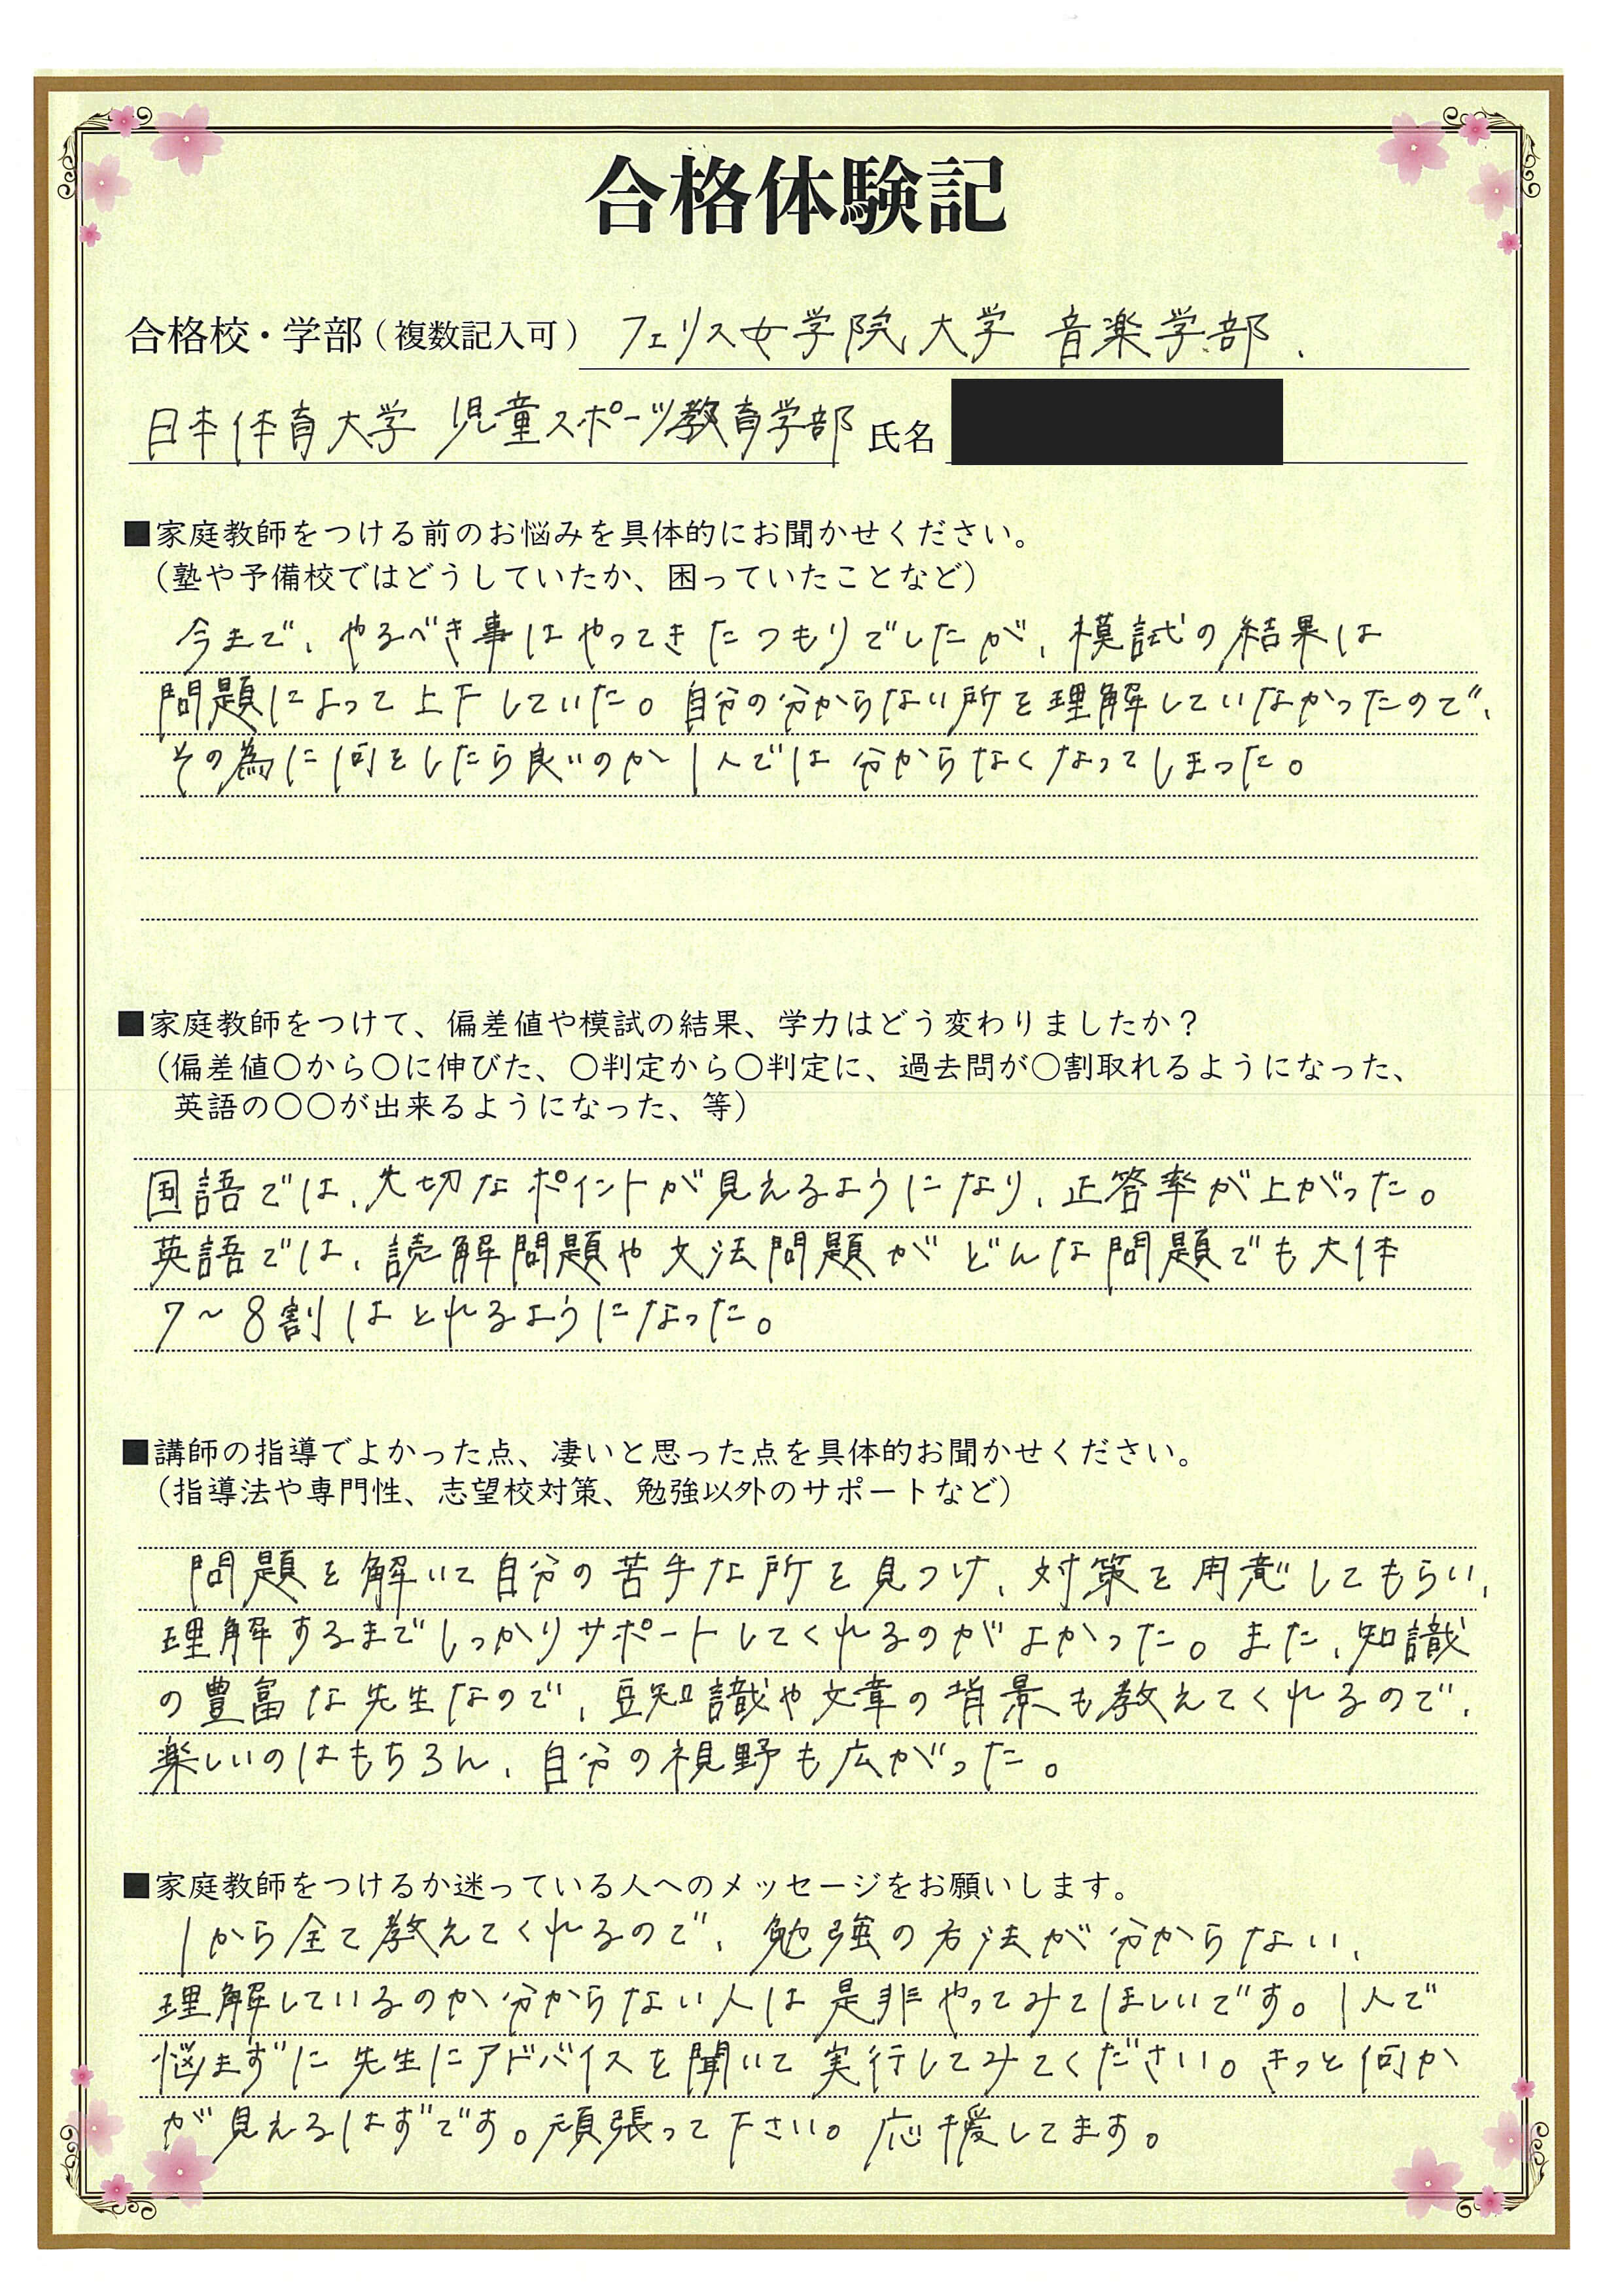 合格体験記
合格校・学部（複数記入可） フェリス女学院大学 音楽学部、
日本体育大学 児童スポーツ教育学部 氏名
■家庭教師をつける前のお悩みを具体的にお聞かせください。
（塾や予備校ではどうしていたか、困っていたことなど）
今まで、やるべき事はやってきたつもりでしたが、模試の結果は
問題によって上下していた。自分の分からない所を理解していなかったので、
その為に何をしたら良いのか1人では分からなくなってしまった。
■家庭教師をつけて、偏差値や模試の結果、学力はどう変わりましたか？
（偏差値〇から〇に伸びた、〇判定から〇判定に、過去問が〇割取れるようになった、
英語の〇〇が出来るようになった、等）
国語では、大切なポイントが見えるようになり、正答率が上がった。
英語では、読解問題や文法問題がどんな問題でも大体
7～8割はとれるようになった。
■講師の指導でよかった点、凄いと思った点を具体的お聞かせください。
（指導法や専門性、志望校対策、勉強以外のサポートなど）
問題を解いて自分の苦手な所を見つけ、対策を用意してもらい、
理解するまでしっかりサポートしてくれるのがよかった。また、知識
の豊富な先生なので、豆知識や文章の背景も教えてくれるので、
楽しいのはもちろん、自分の視野も広がった。
■家庭教師をつけるか迷っている人へのメッセージをお願いします。
1から全て教えてくれるので、勉強の方法が分からない、
理解しているのか分からない人は是非やってみてほしいです。1人で
悩まずに先生にアドバイスを聞いて実行してみてください。きっと何か
が見えるはずです。頑張って下さい。応援してます。